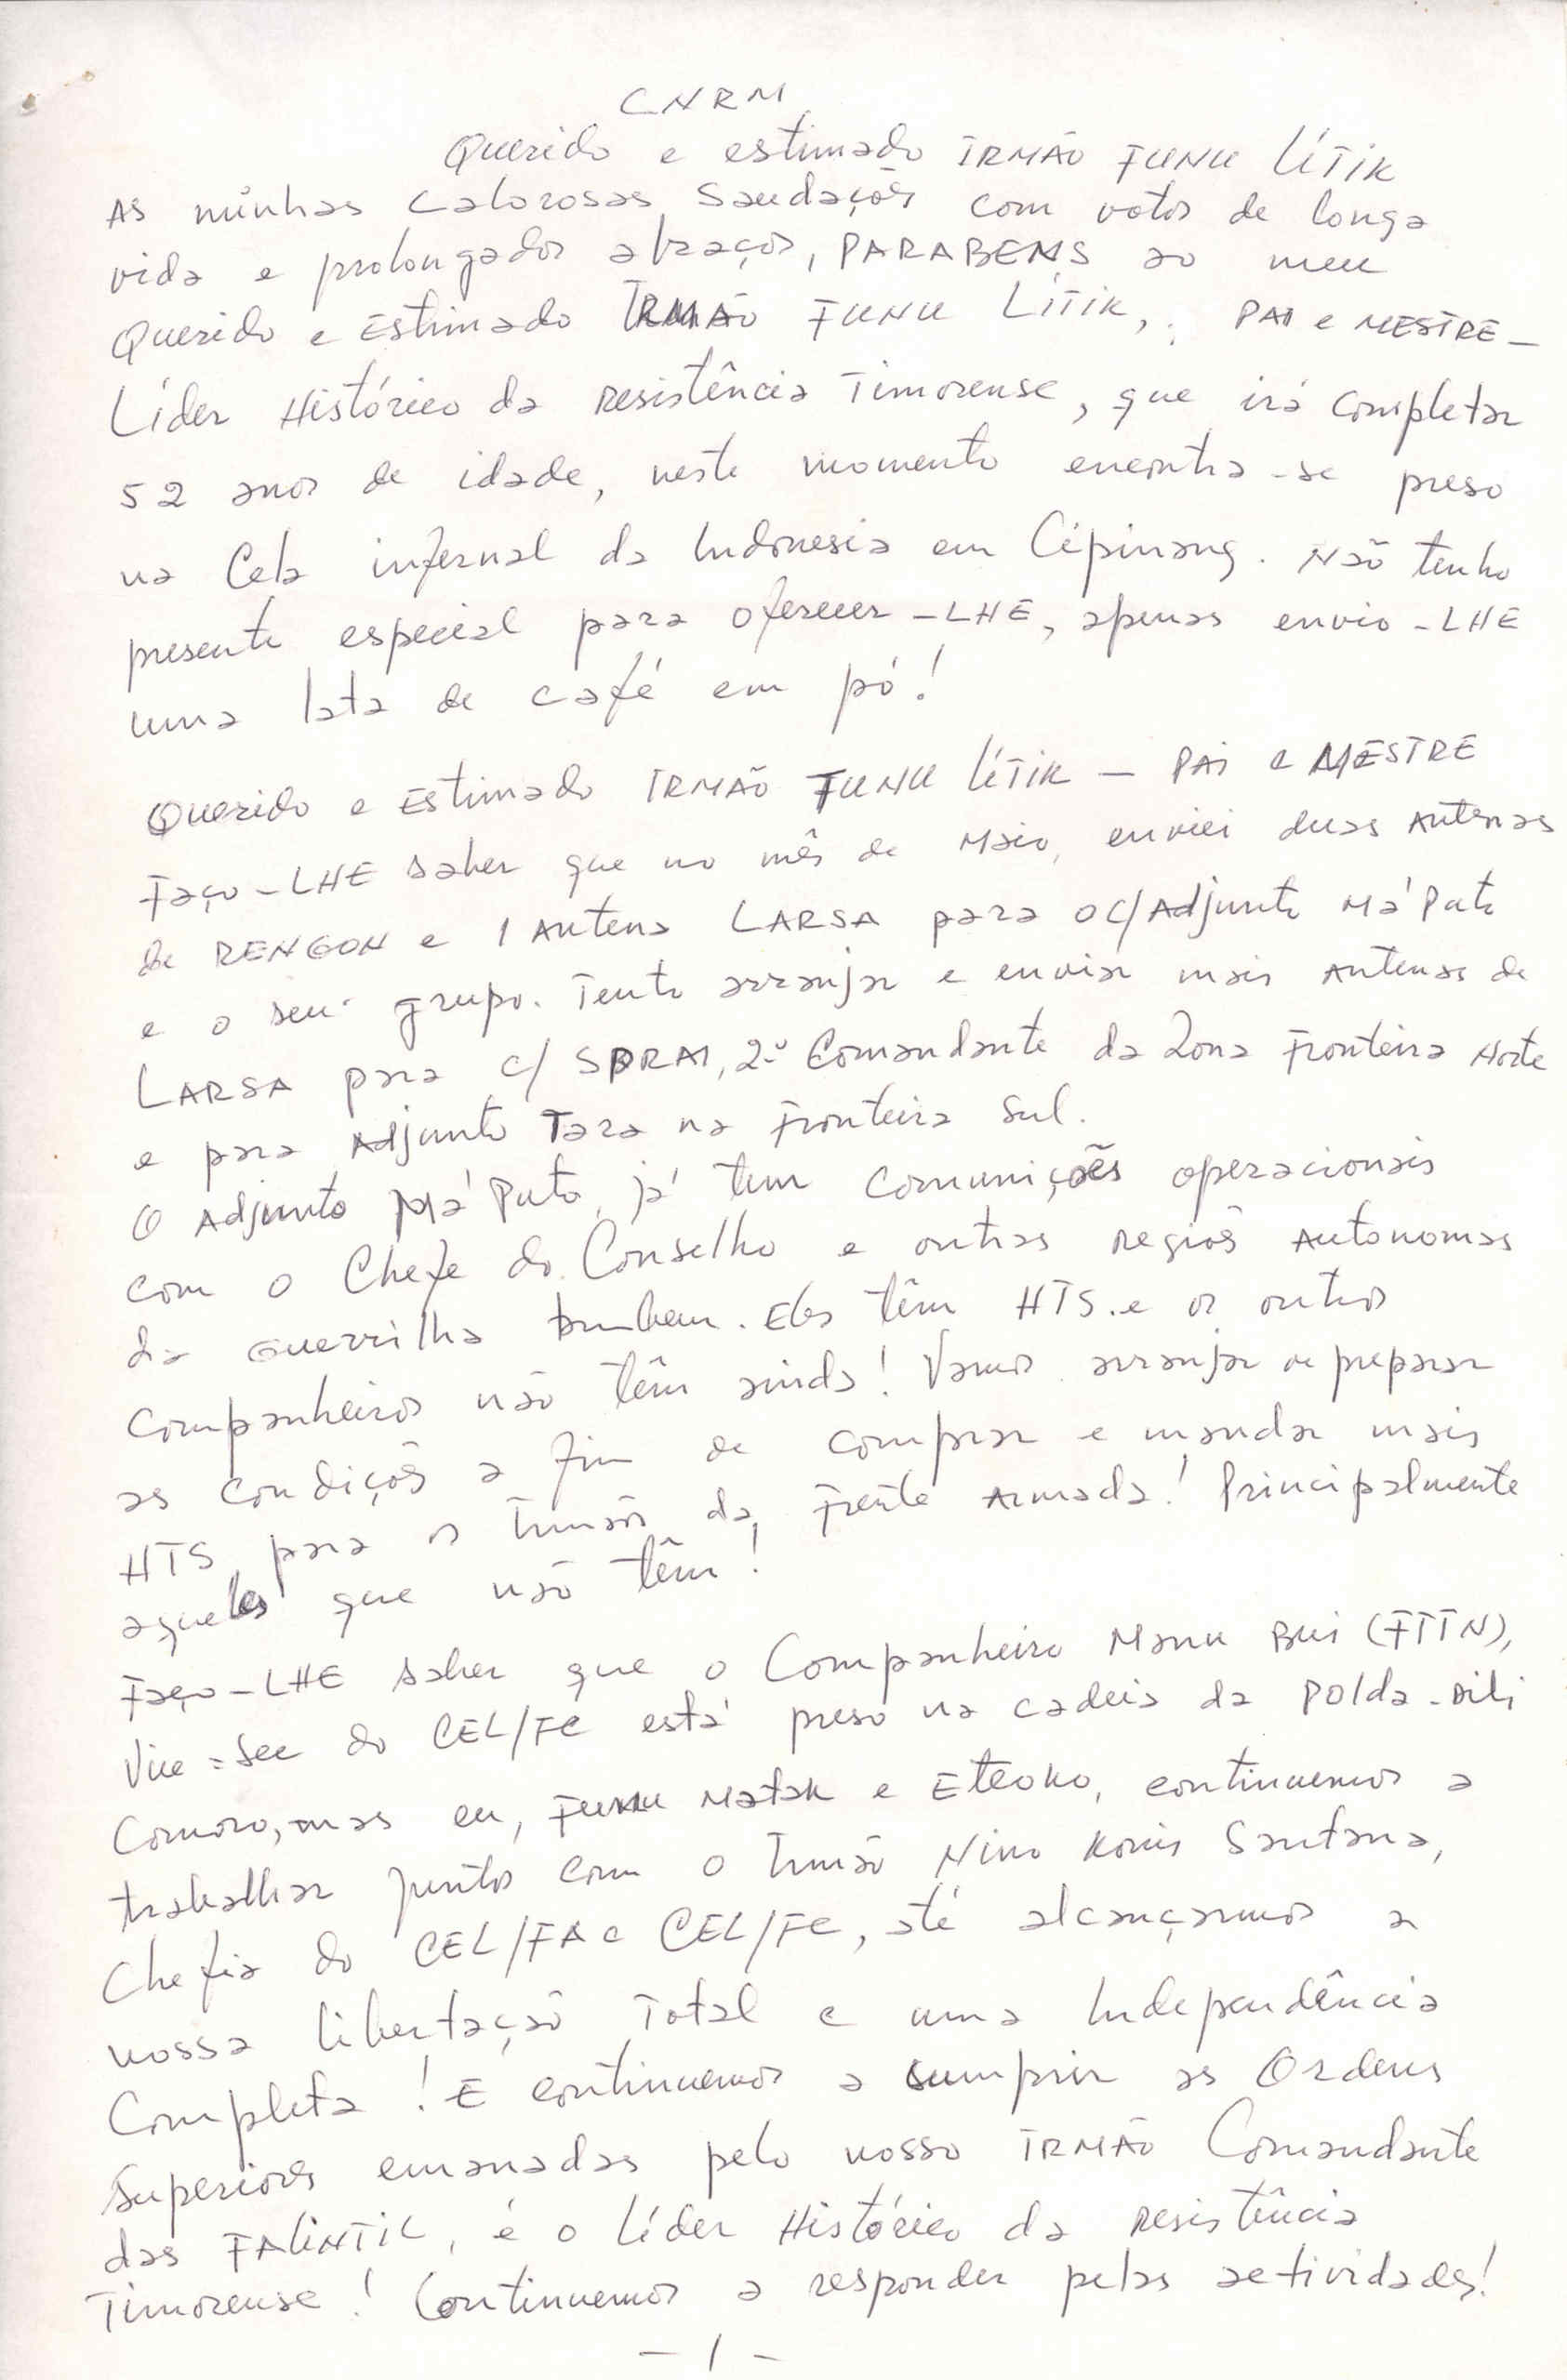 CNRM
Querido e estimado IRMÃO FUNU LÍTIK
As minhas calorosas saudações com votos de longa
vida e prolongados abraços, PARABENS ao meu
Querido e Estimado IRMÃO FUNU LÍTIK, PAI e MESTRE –
Líder Histórico da Resistência Timorense, que irá completar
52 anos de idade, neste momento encontra-se preso
na Cela infernal da Indonesia em Cipinang. Não tenho
presente especial para oferecer-LHE, apenas envio-LHE
uma lata de café em pó!
Querido e Estimado IRMÃO FUNU LÍTIK – PAI e MESTRE
Faço-LHE saber que no mês de Maio, enviei duas Antenas
de RENGON e 1 Antena LARSA para o C/Adjunto Má'Puto
e o seu grupo. Tento arranjar e enviar mais Antenas de
LARSA para C/ SORAI, 2º Comandante da Zona Fronteira Norte
e para Adjunto Tara na Fronteira Sul.
O Adjunto Má'Puto, já tem comunições operacionais
com o Chefe do Conselho e outras regiõs Autonomas
da Guerrilha tambem. Eles têm HTS. e os outros
Companheiros não têm ainda! Vamos arranjar e preparar
as condiçõs a fim de comprar e mandar mais
HTS para os Irmãos da Frente Armada! Principalmente
aqueles que não têm!
Faço-LHE saber que o Companheiro Manu Bui (FITN),
Vice-Sec do CEL/FC está preso na cadeia da Polda-Dili
Comoro, mas eu, Funu Matak e Eteoko, continuemos a
trabalhar juntos com o Irmão Nino Konis Santana,
Chefia do CEL/FA e CEL/FC, até alcançarmos a
nossa libertação Total e uma Independência
Completa! E continuemos a cumprir as Ordens
Superiores emanadas pelo nosso IRMÃO Comandante
das FALINTIL, é o Líder Histórico da Resistência
Timorense! Continuemos a responder pelas actividades!
– 1 –